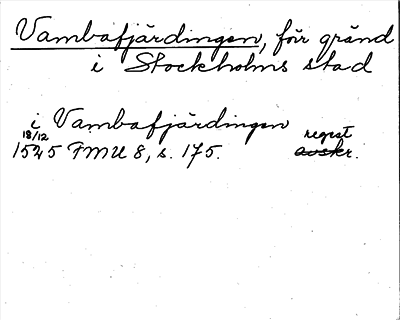 Vambafjärdingen, förr gränd
i Stockholms stad
i Vambafjärdingen
18/12 regest
1545 FMU 8, s. 175. avskr.